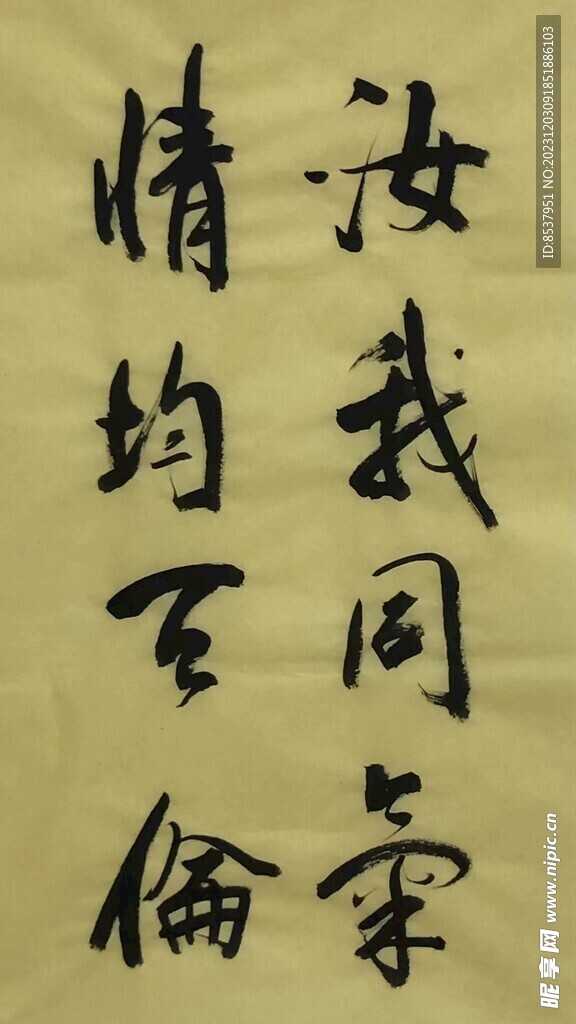 汝我同氣
情均天倫
ID:8537951 NO:20231203091851886103
昵享网 www.nipic.cn